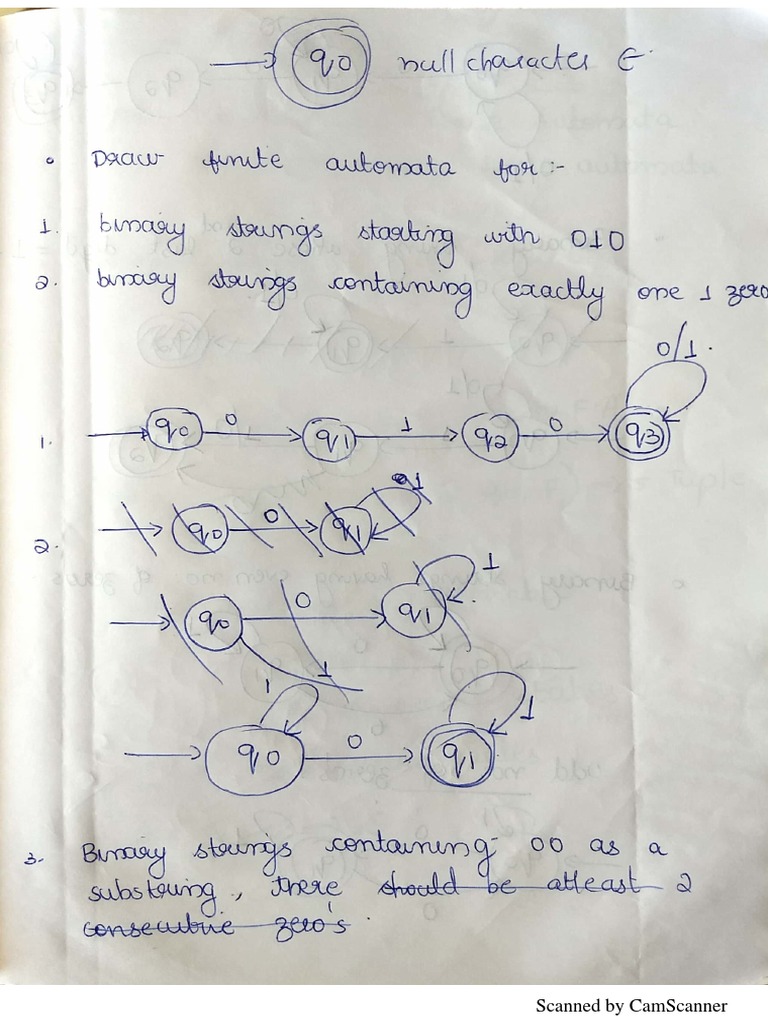 q0 null character ϵ.
Draw finite automata for:-
1. binary strings starting with 010
2. binary strings containing exactly one 1 zero
0/1.
1. q0 0 q1 1 q2 0 q3
q0 0 q1 1
2.
q0 0 q1 1
1
1 1
q0 0 q1
3. Binary strings containing 00 as a
substring, there should be atleast 2
consecutive zero's.
Scanned by CamScanner